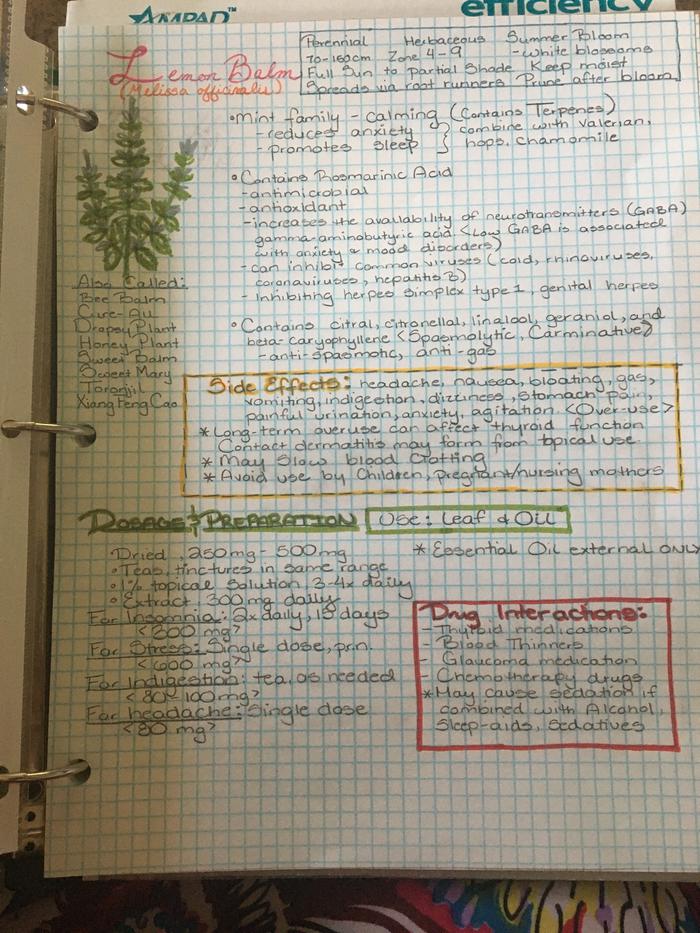 AKAPAD™
efficiency
Lemon Balm
(Melissa officinalis)
Perennial Herbaceous Summer Bloom
70-150cm Zone 4-9 -white blossoms
Full Sun to Partial Shade Keep moist
Spreads via root runners Prune after bloom
•Mint family - calming (Contains Terpenes)
-reduces anxiety } combine with valerian,
-promotes sleep hops, chamomile
•Contains Rosmarinic Acid
-antimicrobial
-antioxidant
-increases the availability of neurotransmitters (GABA)
gamma-aminobutyric acid. <Low GABA is associated
with anxiety & mood disorders>
-can inhibit common viruses (cold, rhinoviruses,
coronaviruses, hepatitis B)
- Inhibiting herpes simplex type 1, genital herpes
•Contains citral, citronellal, linalool, geraniol, and
beta-caryophyllene <Spasmolytic, Carminative>
-anti-spasmotic, anti-gas
Also Called:
Bee Balm
Cure-All
Dropsy Plant
Honey Plant
Sweet Balm
Sweet Mary
Toronjil
Xiang Feng Cao
Side Effects: headache, nausea, bloating, gas,
vomiting, indigestion, dizziness, stomach pain,
painful urination, anxiety, agitation <Over-use>
* Long-term overuse can affect thyroid function
Contact dermatitis may form from topical use.
* May Slow blood Clotting
* Avoid use by Children, pregnant/nursing mothers
Dosage & Preparation
Use: Leaf & Oil
Dried, 250mg - 500mg
* Essential Oil external ONLY
•Teas, tinctures in same range
•1% topical solution 3-4x daily
• Extract, 300mg daily
For Insomnia: 2x daily, 15 days
For Stress: Single dose, prn.
<600 mg>
For Indigestion: tea, as needed
For headache: Single dose
<80 mg>
Drug Interactions:
- Thyroid medications
- Blood Thinners
- Glaucoma medication
- Chemotherapy drugs
*May cause sedation if
combined with Alcohol,
Sleep-aids, Sedatives